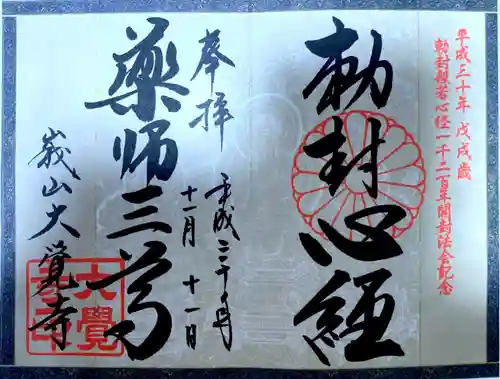 平成三十年 戊戌歳
勅封般若心経一千二百年開封法会記念
勅封心経
奉拝
平成三十年
十一月 十一日
薬師三尊
嵯山大覺寺
大覺寺印